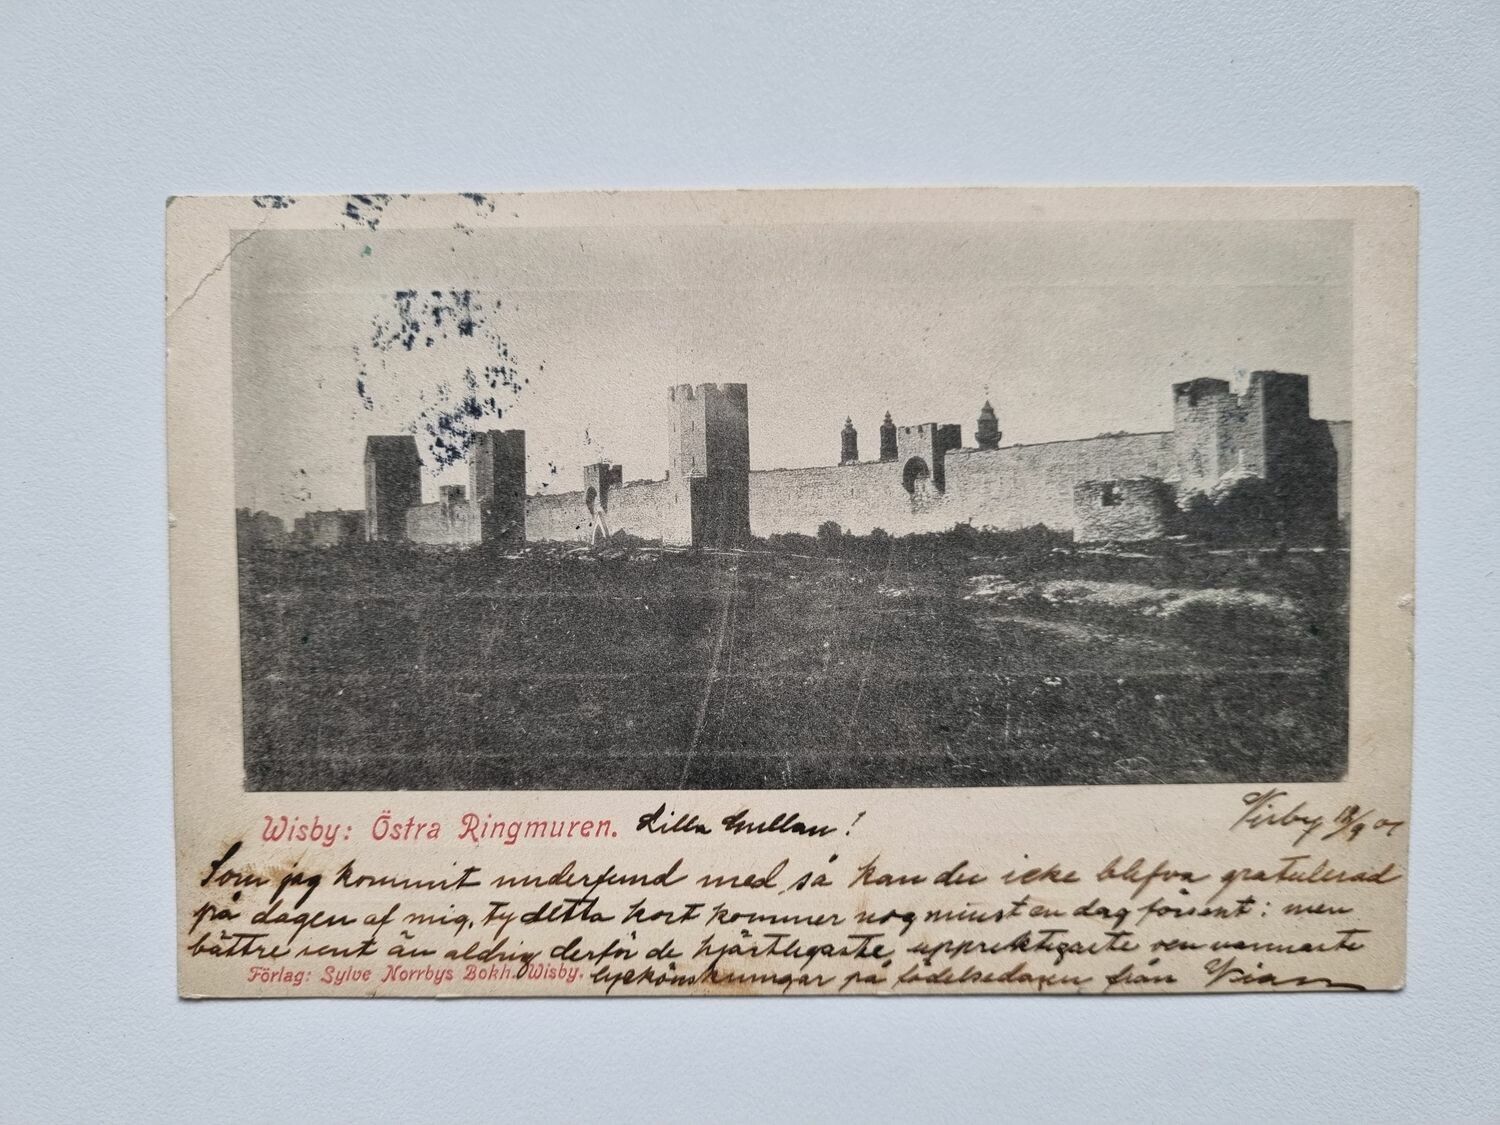 Wisby: Östra Ringmuren. Lilla Gullan!
Visby 18/9 01
Som jag kommit underfund med så kan du icke blefva gratulerad
på dagen af mig, ty detta kort kommer nog minst en dag försent: men
bättre sent än aldrig derför de hjärtligaste, uppriktigaste och varmaste
Förlag: Sylve Norrbys Bokh. Wisby. lyckönskningar på födelsedagen från